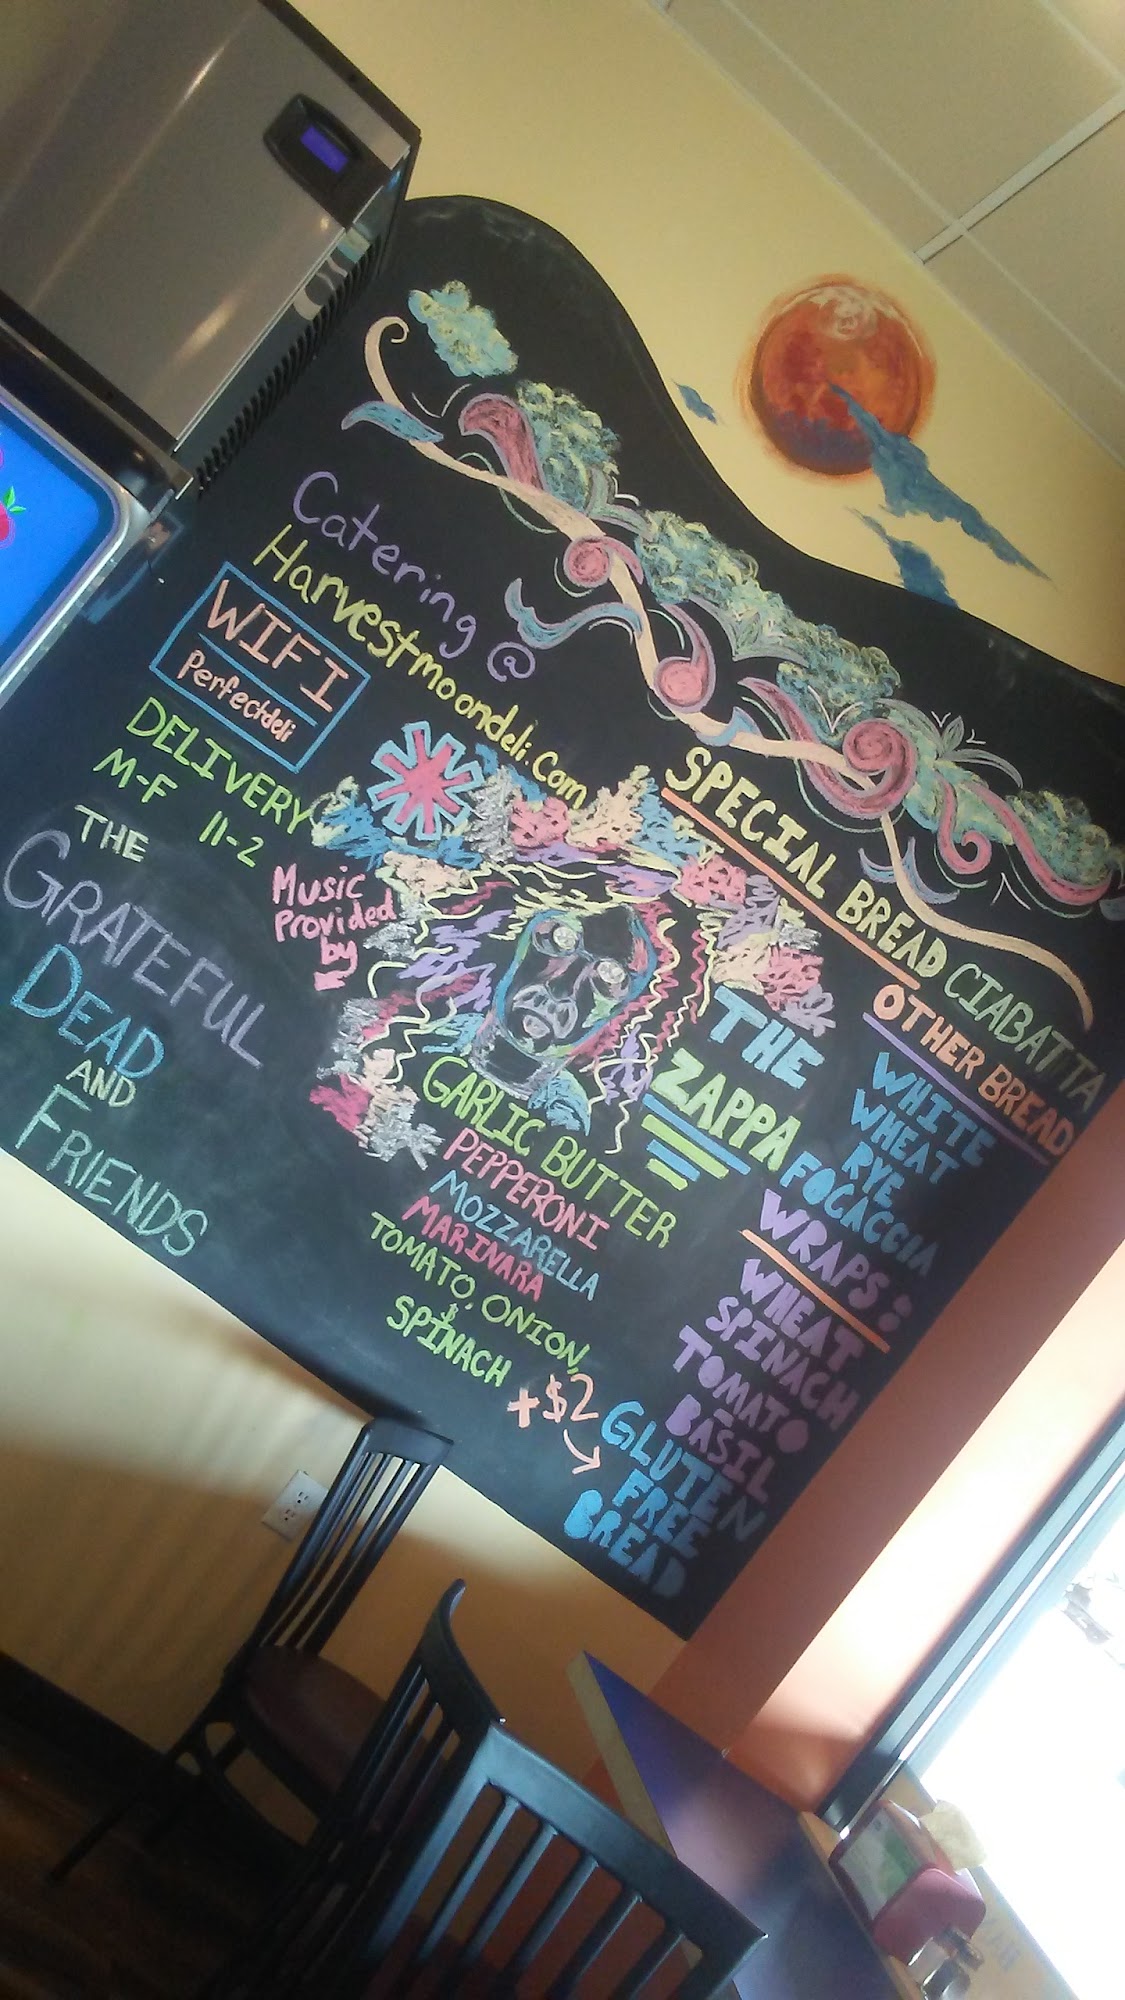 Catering @
Harvestmoondeli.com
WIFI
Perfectdeli
DELIVERY
M-F 11-2
THE
GRATEFUL
DEAD
AND
FRIENDS
Music
Provided
by
SPECIAL BREAD
CIABATTA
OTHER BREAD
WHITE
WHEAT
RYE
FOCACCIA
WRAPS:
WHEAT
SPINACH
TOMATO
BASIL
+$2
GLUTEN
FREE
BREAD
THE
ZAPPA
GARLIC BUTTER
PEPPERONI
MOZZARELLA
MARINARA
TOMATO, ONION,
&
SPINACH